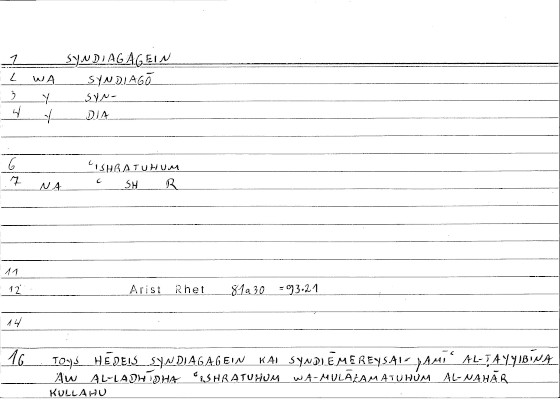 1 SYNDIAGAGEIN
2 WA SYNDIAGŌ
3 Y SYN-
4 Y DIA
6 ʿISHRATUHUM
7 NA ʿ SH R
11
12 Arist Rhet 81a30 =93.21
14
16 TOYS HĒDEIS SYNDIAGAGEIN KAI SYNDIĒMEREYSAI- JAMĪʿ AL-ṬAYYIBĪNA
AW AL-LADHĪDHA ʿISHRATUHUM WA-MULĀZAMATUHUM AL-NAHĀR
KULLAHU